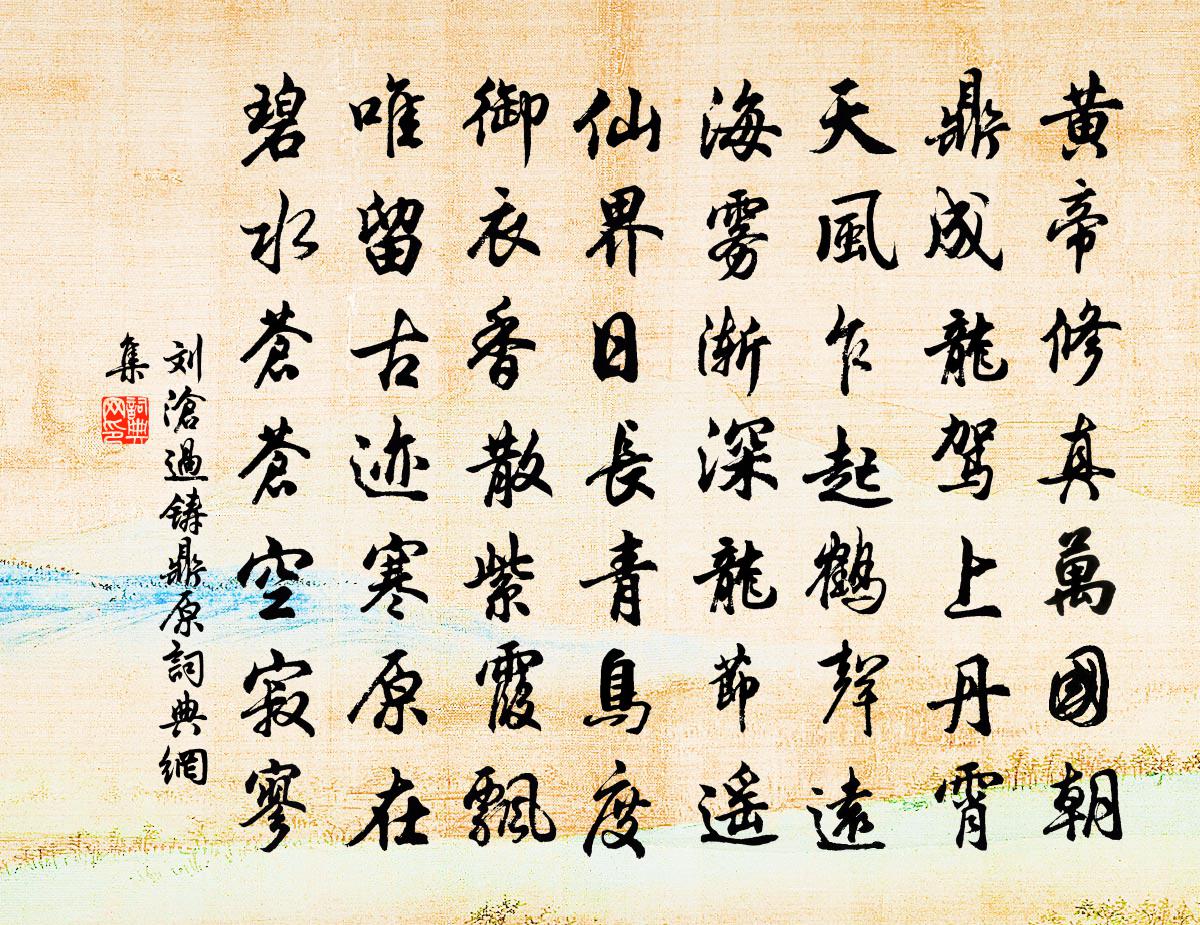 黃帝修真萬國朝
鼎成龍駕上丹霄
天風乍起鶴聲遠
海雾漸深龍節遥
仙界日長青鳥度
御衣香散紫霞飄
唯留古迹寒原在
碧水蒼蒼空寂寥
刘滄過鑄鼎原詞典網
集
詞典
网印